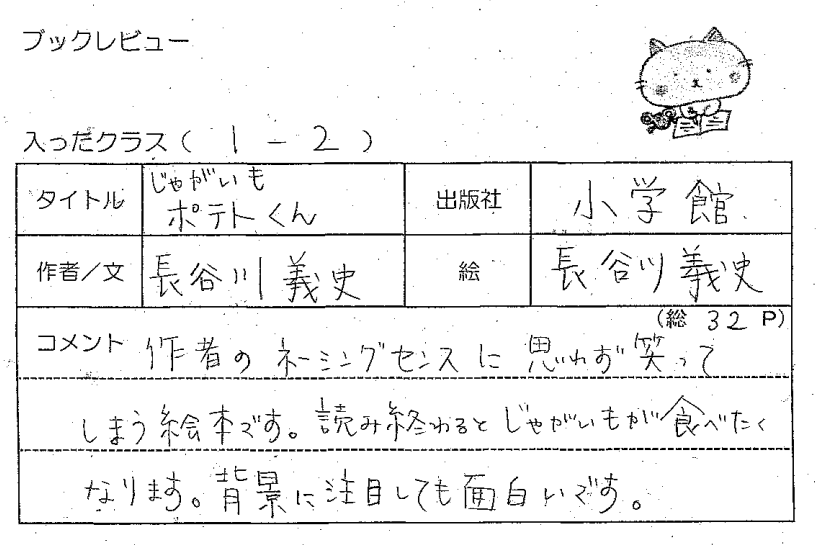 ブックレビュー
入ったクラス( 1 - 2 )
タイトル じゃがいも ポテトくん 出版社 小学館
作者/文 長谷川義史 絵 長谷川義史
(総 32 P)
コメント 作者のネーミングセンスに思わず笑って
しまう絵本です。読み終わるとじゃがいもが食べたく
なります。背景に注目しても面白いです。